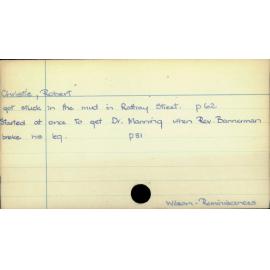 Christie, Robert
got stuck in the mud in Rattray Street. p62
Started at once to get Dr. Manning when Rev. Bannerman
broke his leg. p81
Wilson - Reminiscences